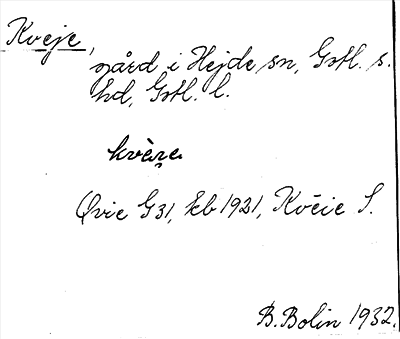 Kveje,
gård i Hejde sn, Gotl. s.
hd, Gotl. l.
Øvie G31, Eb 1921, Kvēie S.
B. Bolin 1932.